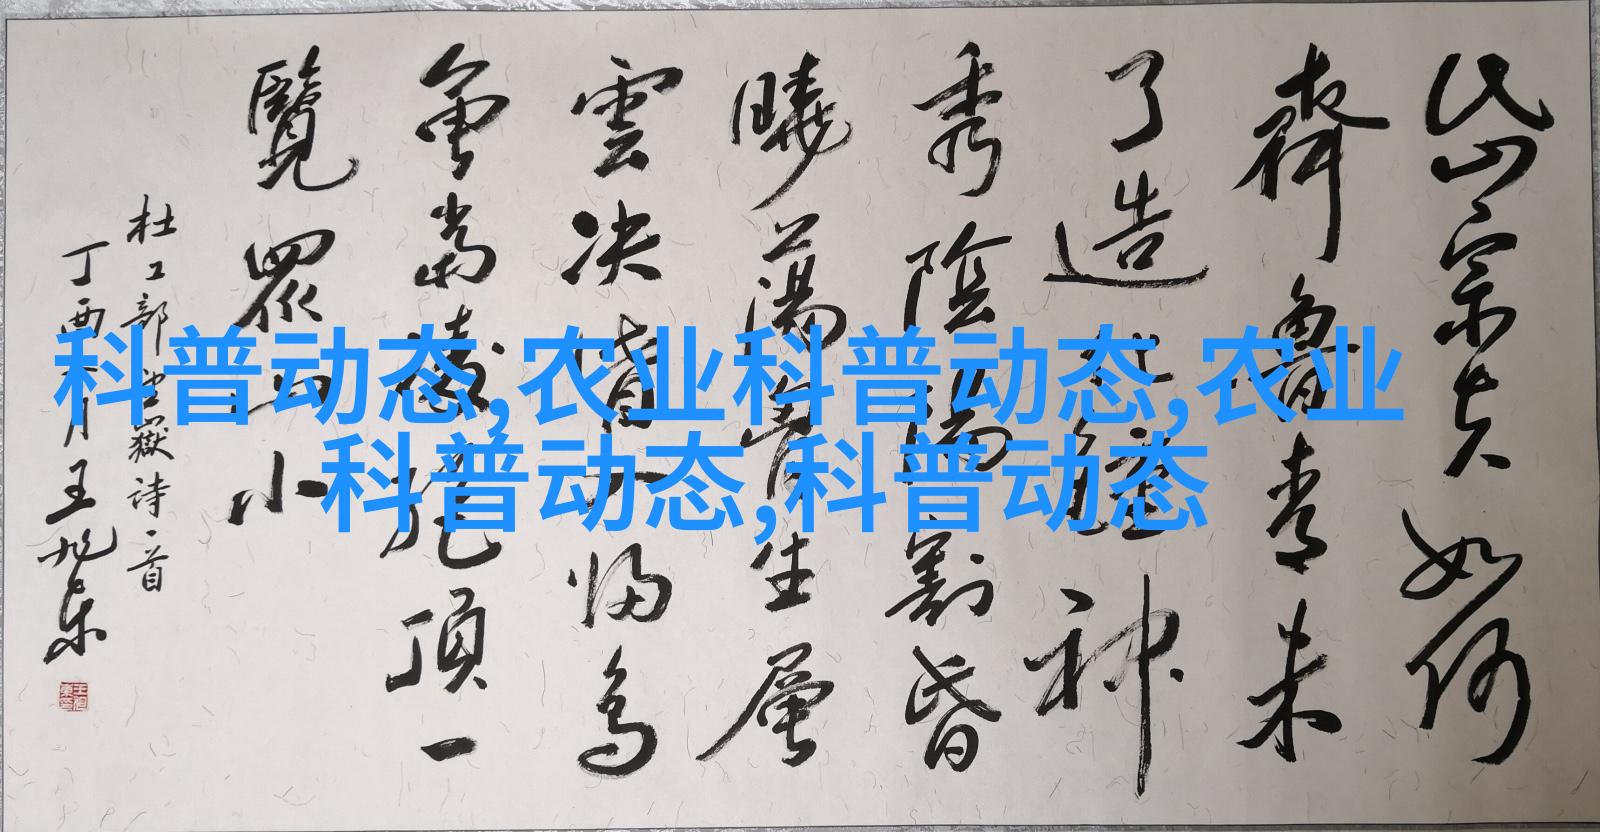 岱宗夫如何
齊魯青未
了造化鍾神
秀陰陽割昏
曉蕩胷生層
雲決眥入歸鳥
會當凌絕頂一
覽眾山小
杜工部望嶽詩一首
丁酉八月王旭东
科普动态,农业科普动态,农业
科普动态,科普动态